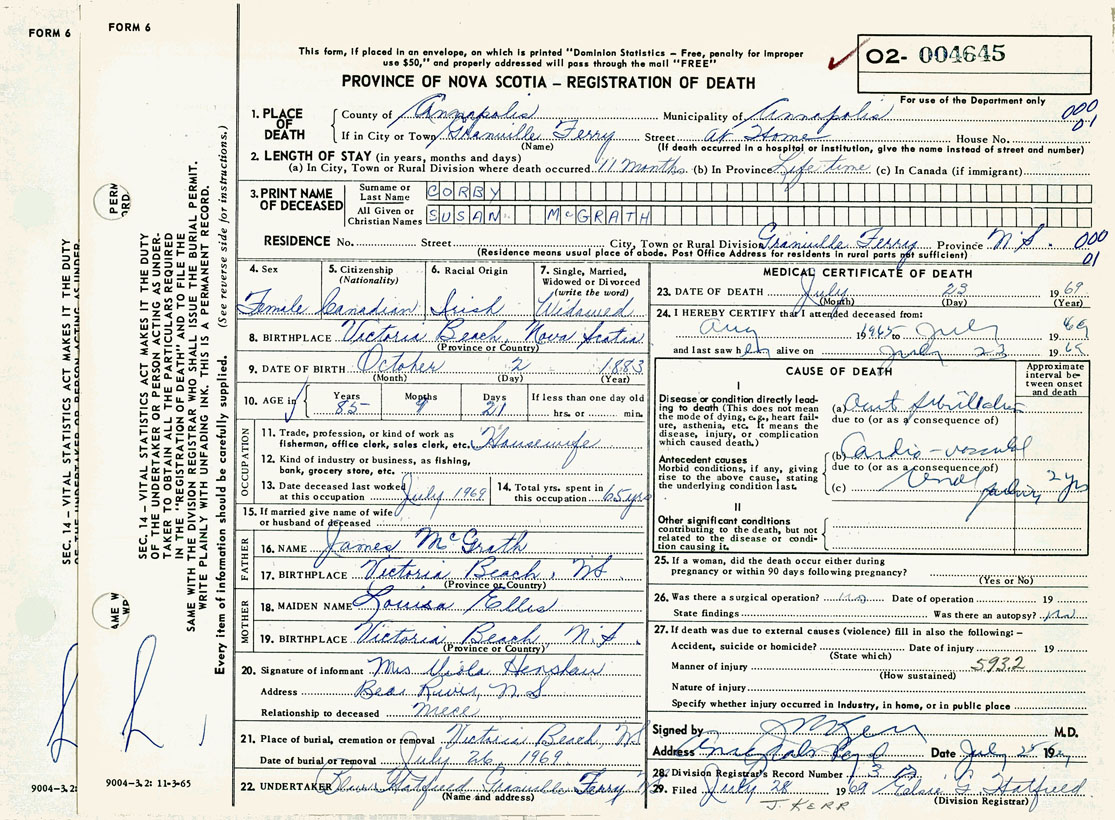 FORM 6
FORM 6
This form, if placed in an envelope, on which is printed "Dominion Statistics – Free, penalty for improper
use $50," and properly addressed will pass through the mail "FREE"
PROVINCE OF NOVA SCOTIA – REGISTRATION OF DEATH
02- 004645
For use of the Department only
1. PLACE OF DEATH
County of Annapolis Municipality of Annapolis
000
01
If in City or Town Granville Ferry Street At Home House No.
(Name) (If death occurred in a hospital or institution, give the name instead of street and number)
2. LENGTH OF STAY (in years, months and days)
(a) In City, Town or Rural Division where death occurred 11 Months (b) In Province Life time (c) In Canada (if immigrant)
3. PRINT NAME OF DECEASED
Surname or Last Name CORBY
All Given or Christian Names SUSAN McGRATH
RESIDENCE No. Street City, Town or Rural Division Granville Ferry Province N.S.
000
01
(Residence means usual place of abode. Post Office Address for residents in rural parts not sufficient)
4. Sex
Female
5. Citizenship
(Nationality)
Canadian
6. Racial Origin
Irish
7. Single, Married,
Widowed or Divorced
(write the word)
Widowed
8. BIRTHPLACE Victoria Beach, Nova Scotia
(Province or Country)
9. DATE OF BIRTH October 2 1883
(Month) (Day) (Year)
10. AGE in Years 85 Months 9 Days 21 If less than one day old
hrs. or min.
OCCUPATION
11. Trade, profession, or kind of work as
fisherman, office clerk, sales clerk, etc. Housewife
12. Kind of industry or business, as fishing,
bank, grocery store, etc.
13. Date deceased last worked
at this occupation July 1969
14. Total yrs. spent in
this occupation 65 yrs
15. If married give name of wife
or husband of deceased
FATHER
16. NAME James McGrath
17. BIRTHPLACE Victoria Beach, N.S.
(Province or Country)
MOTHER
18. MAIDEN NAME Louisa Ellis
19. BIRTHPLACE Victoria Beach N.S.
(Province or Country)
20. Signature of informant Mrs Viola Henshaw
Address Bear River, N S
Relationship to deceased niece
21. Place of burial, cremation or removal Victoria Beach, NS
Date of burial or removal July 26, 1969
22. UNDERTAKER Hatfield Granville Ferry NS
(Name and address)
MEDICAL CERTIFICATE OF DEATH
23. DATE OF DEATH July 23 1969
(Month) (Day) (Year)
24. I HEREBY CERTIFY that I attended deceased from:
Aug 1965 to July 69
and last saw her alive on July 23 1969
CAUSE OF DEATH
Approximate
interval be-
tween onset
and death
I
Disease or condition directly lead-
ing to death (This does not mean
the mode of dying, e.g., heart fail-
ure, asthenia, etc. It means the
disease, injury, or complication
which caused death.)
(a)
due to (or as a consequence of)
Antecedent causes
Morbid conditions, if any, giving
rise to the above cause, stating
the underlying condition last.
(b) Cardio-vascular
due to (or as a consequence of)
(c) renal 2 yrs
II
Other significant conditions
contributing to the death, but not
related to the disease or condi-
tion causing it.
25. If a woman, did the death occur either during
pregnancy or within 90 days following pregnancy?
(Yes or No)
26. Was there a surgical operation? no Date of operation 19
State findings Was there an autopsy? no
27. If death was due to external causes (violence) fill in also the following: –
Accident, suicide or homicide? Date of injury 19
(State which)
Manner of injury 593.2
(How sustained)
Nature of injury
Specify whether injury occurred in Industry, in home, or in public place
Signed by J M Kerr M.D.
Address Annapolis Royal Date July 25 1969
28. Division Registrar's Record Number
29. Filed July 28 1969 Elsie G Hatfield
(Division Registrar)
J. KERR
SEC. 14 – VITAL STATISTICS ACT MAKES IT THE DUTY
SEC. 14 – VITAL STATISTICS ACT MAKES IT THE DUTY
OF THE UNDERTAKER OR PERSON ACTING AS UNDER-
TAKER TO OBTAIN ALL THE PARTICULARS REQUIRED
IN THE "REGISTRATION OF DEATH" AND TO FILE THE
SAME WITH THE DIVISION REGISTRAR WHO SHALL ISSUE THE BURIAL PERMIT.
WRITE PLAINLY WITH UNFADING INK. THIS IS A PERMANENT RECORD.
Every item of information should be carefully supplied. (See reverse side for instructions.)
9004-3.2:
9004-3.2: 11-3-65